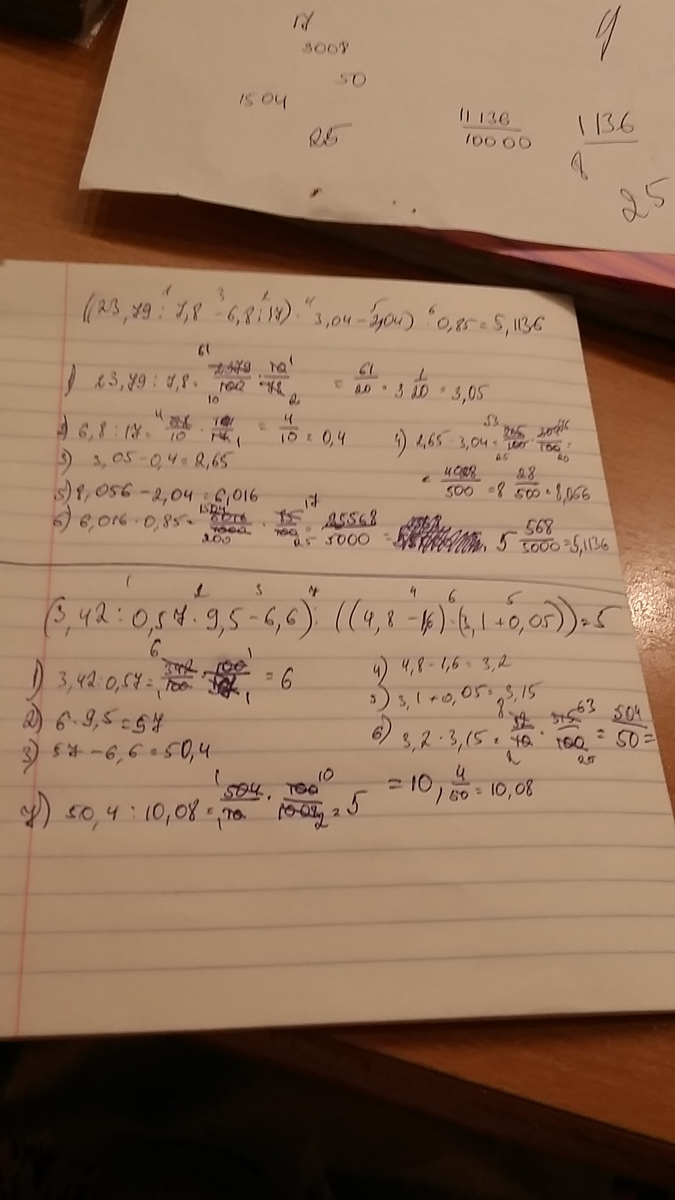 17
3008
50
1504
25
11136/10000
1136/8
25
((23,79 : 7,8 - 6,8 : 17) · 3,04 - 2,04) · 0,85 = 5,1136
1) 23,79 : 7,8 = 2379/100 · 10/78 = 61/20 = 3 1/20 = 3,05
2) 6,8 : 17 = 68/10 · 1/17 = 4/10 = 0,4
4) 2,65 · 3,04 = 265/100 · 304/100 =
3) 3,05 - 0,4 = 2,65
= 4028/500 = 8 28/500 = 8,056
5) 8,056 - 2,04 = 6,016
6) 6,016 · 0,85 = 6016/1000 · 85/100 = 25568/5000 = 5 568/5000 = 5,1136
(3,42 : 0,57 · 9,5 - 6,6) : ((4,8 - 1,6) · (3,1 + 0,05)) = 5
1) 3,42 : 0,57 = 342/100 · 100/57 = 6
4) 4,8 - 1,6 = 3,2
2) 6 · 9,5 = 57
5) 3,1 + 0,05 = 3,15
3) 57 - 6,6 = 50,4
6) 3,2 · 3,15 = 32/10 · 315/100 = 504/50 =
= 10, 4/50 = 10,08
7) 50,4 : 10,08 = 504/10 · 100/1008 = 5